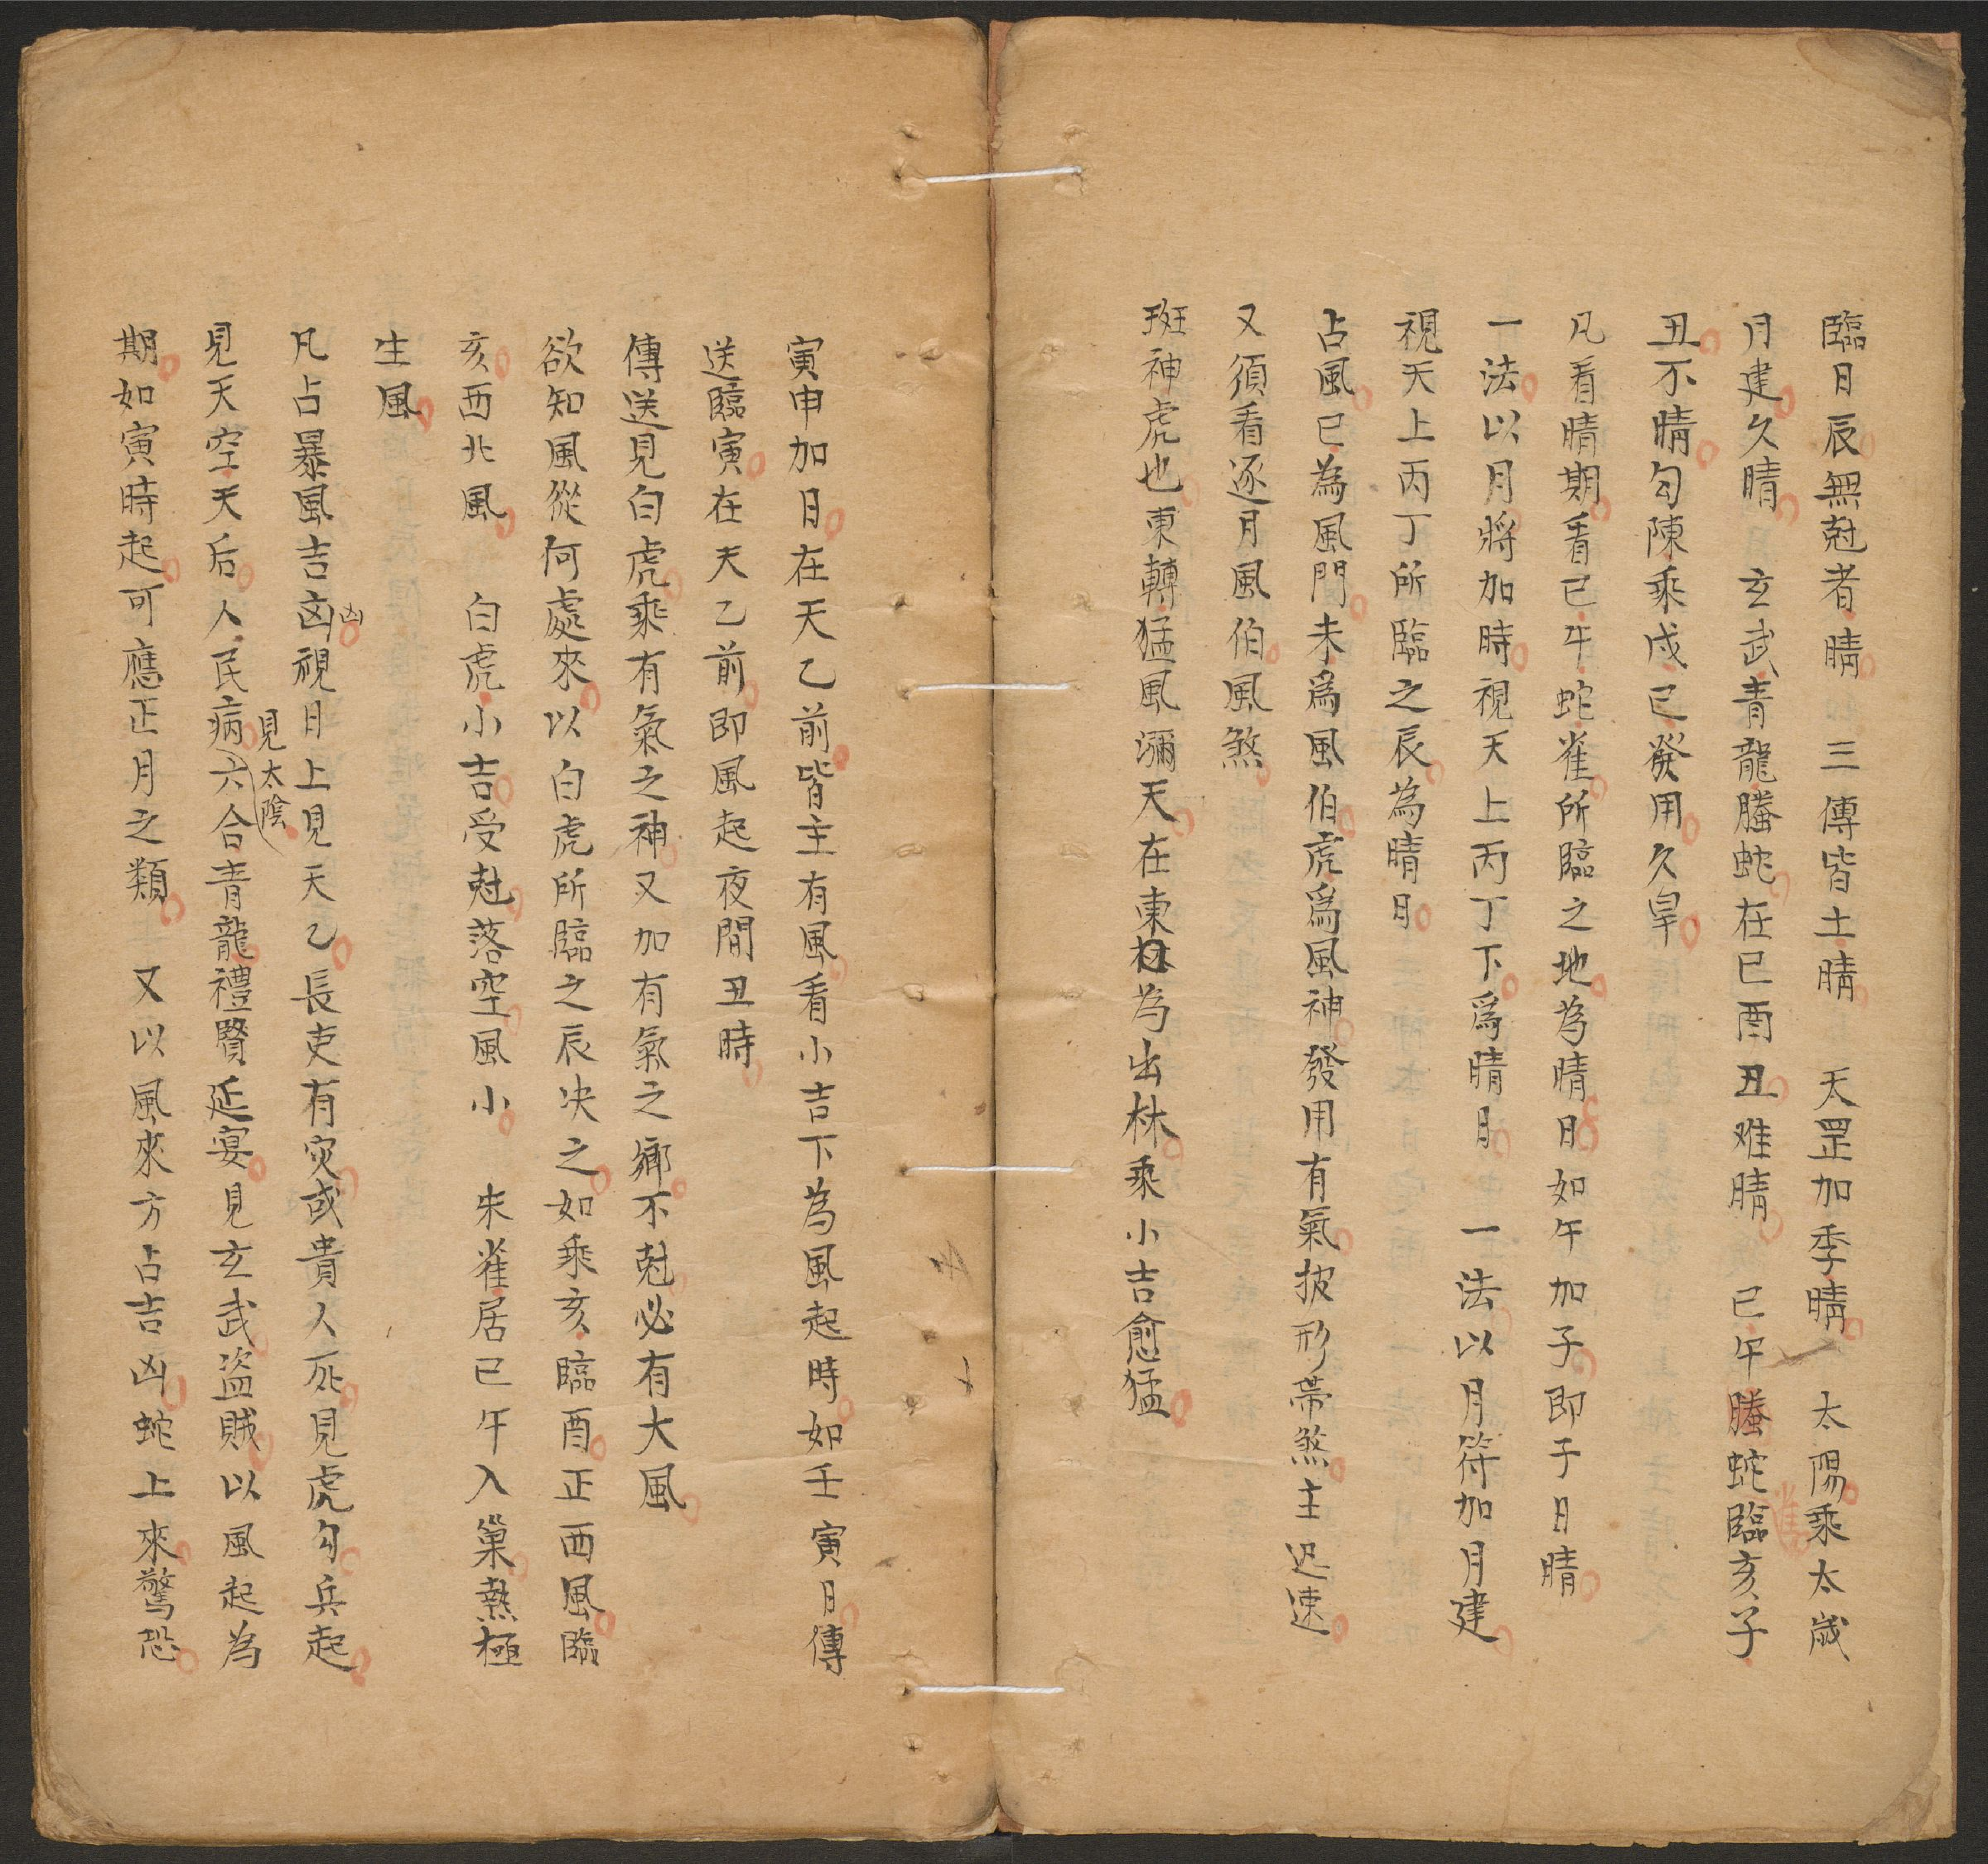 臨日辰無尅者晴　三傳皆土晴　天罡加季晴　太陽乘太歲
月建久晴　玄武青龍螣蛇在巳酉丑难晴　巳午螣蛇臨亥子
雀
丑不晴勾陳乘戌巳發用久旱
凡看晴期看巳午蛇雀所臨之地為晴日如午加子即子日晴
一法以月將加時視天上丙丁下爲晴日　一法以月符加月建
視天上丙丁所臨之辰為晴日
占風巳為風門未爲風伯虎爲風神發用有氣披形帶煞主迅速
又須看逐月風伯風煞
班神虎也東轉猛風瀰天在東為出林乘小吉愈猛
寅申加日在天乙前皆主有風看小吉下為風起時如壬寅日傳
送臨寅在天乙前即風起夜間丑時
傳送見白虎乘有氣之神又加有氣之鄉不尅必有大風
欲知風從何處來以白虎所臨之辰决之如乘亥臨酉正西風臨
亥西北風　白虎小吉受尅落空風小　朱雀居巳午入巢熱極
生風
凡占暴風吉凶視日上見天乙長吏有灾或貴人死見虎勾兵起
凶
見太陰
見天空天后人民病六合青龍禮賢延宴見玄武盜賊以風起為
期如寅時起可應正月之類　又以風來方占吉凶蛇上來驚恐